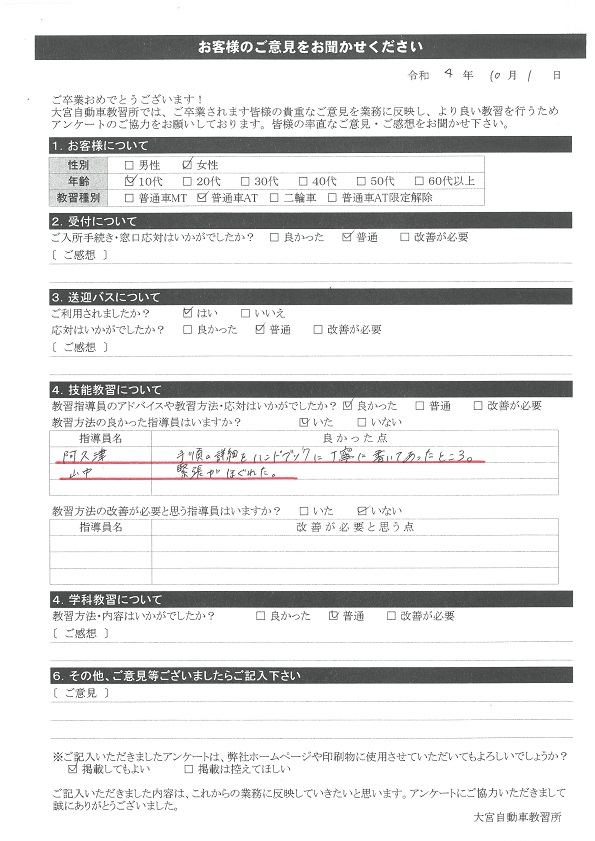 お客様のご意見をお聞かせください
令和 4 年 10 月 1 日
ご卒業おめでとうございます！
大宮自動車教習所では、ご卒業されます皆様の貴重なご意見を業務に反映し、より良い教習を行うため
アンケートのご協力をお願いしております。皆様の率直なご意見・ご感想をお聞かせ下さい。
1. お客様について
性別 □ 男性 ☑ 女性
年齢 ☑ 10代 □ 20代 □ 30代 □ 40代 □ 50代 □ 60代以上
教習種別 □ 普通車MT ☑ 普通車AT □ 二輪車 □ 普通車AT限定解除
2. 受付について
ご入所手続き・窓口応対はいかがでしたか？ □ 良かった ☑ 普通 □ 改善が必要
〔 ご感想 〕
3. 送迎バスについて
ご利用されましたか？ ☑ はい □ いいえ
応対はいかがでしたか？ □ 良かった ☑ 普通 □ 改善が必要
〔 ご感想 〕
4. 技能教習について
教習指導員のアドバイスや教習方法・応対はいかがでしたか？ ☑ 良かった □ 普通 □ 改善が必要
教習方法の良かった指導員はいますか？ ☑ いた □ いない
指導員名 良かった点
阿久津 手順の詳細をハンドブックに丁寧に書いてあったところ。
山中 緊張がほぐれた。
教習方法の改善が必要と思う指導員はいますか？ □ いた ☑ いない
指導員名 改善が必要と思う点
4. 学科教習について
教習方法・内容はいかがでしたか？ □ 良かった ☑ 普通 □ 改善が必要
〔 ご感想 〕
6. その他、ご意見等ございましたらご記入下さい
〔 ご意見 〕
※ご記入いただきましたアンケートは、弊社ホームページや印刷物に使用させていただいてもよろしいでしょうか？
☑ 掲載してもよい □ 掲載は控えてほしい
ご記入いただきました内容は、これからの業務に反映していきたいと思います。アンケートにご協力いただきまして
誠にありがとうございました。
大宮自動車教習所